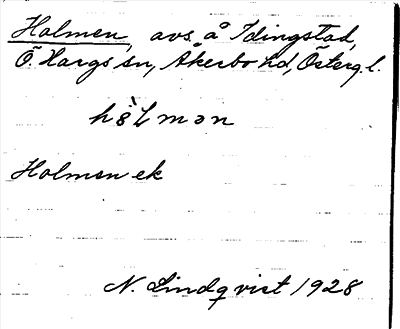 Holmen, avs. å Idingstad,
Ö. Hargs sn, Åkerbo hd, Österg. l.
Holmen ek
N. Lindqvist 1928